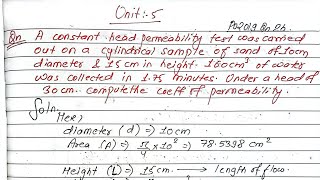 Unit:-5
Po2019 Qn 2b.
Qn. A constant head permeability test was carried
out on a cylindrical sample of sand of 10cm
diameter & 15cm in height. 160cm³ of water
was collected in 1.75 minutes. Under a head of
30cm. compute the coeff of permeability.
Soln.
Here,
diameter (d) => 10cm
Area (A) => π/4 × 10² => 78.5398 cm²
Height (L) => 15cm. → length of flow.